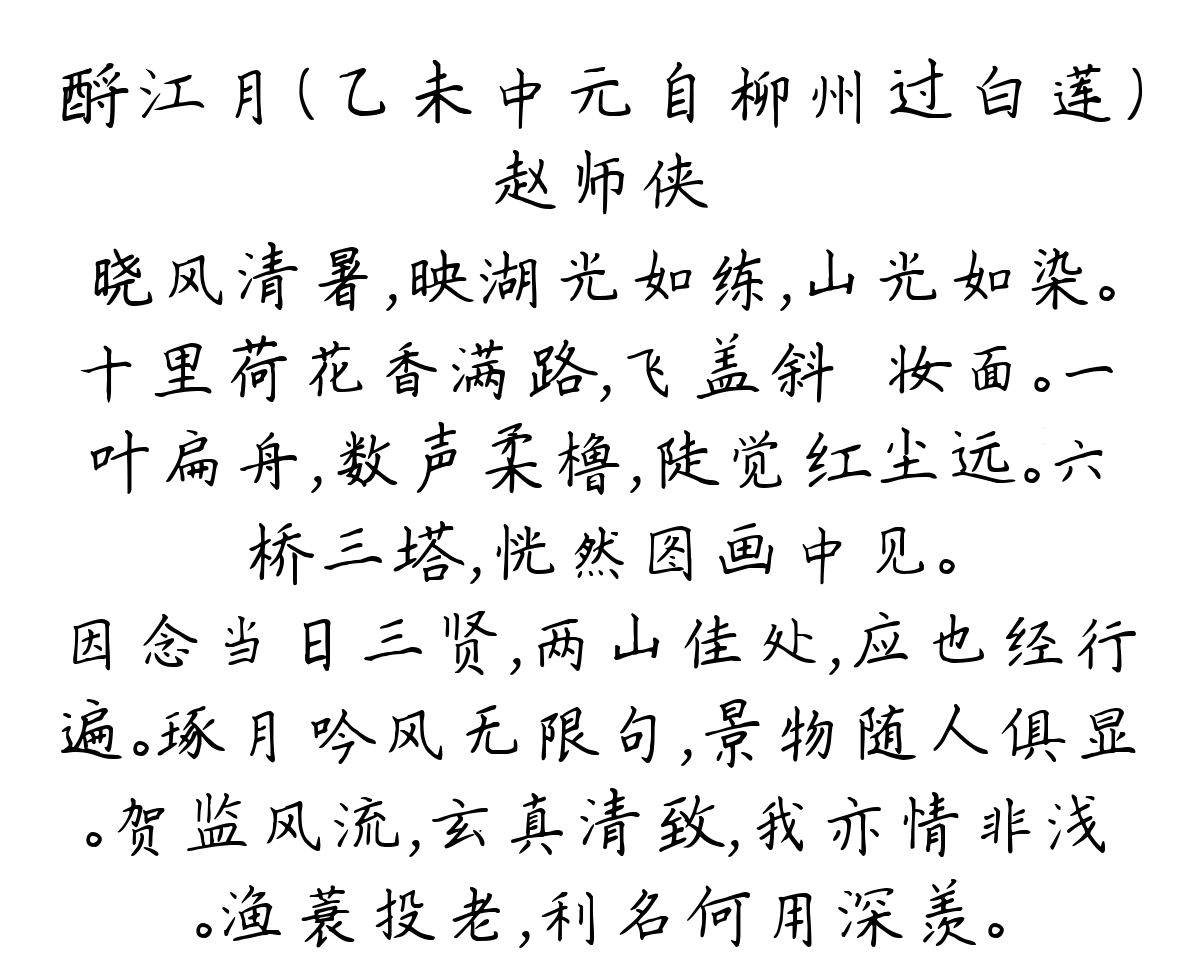 酹江月(乙未中元自柳州过白莲)
赵师侠
晓风清暑,映湖光如练,山光如染。
十里荷花香满路,飞盖斜 妆面。一
叶扁舟,数声柔橹,陡觉红尘远。六
桥三塔,恍然图画中见。
因念当日三贤,两山佳处,应也经行
遍。琢月吟风无限句,景物随人俱显
。贺监风流,玄真清致,我亦情非浅
。渔蓑投老,利名何用深羡。